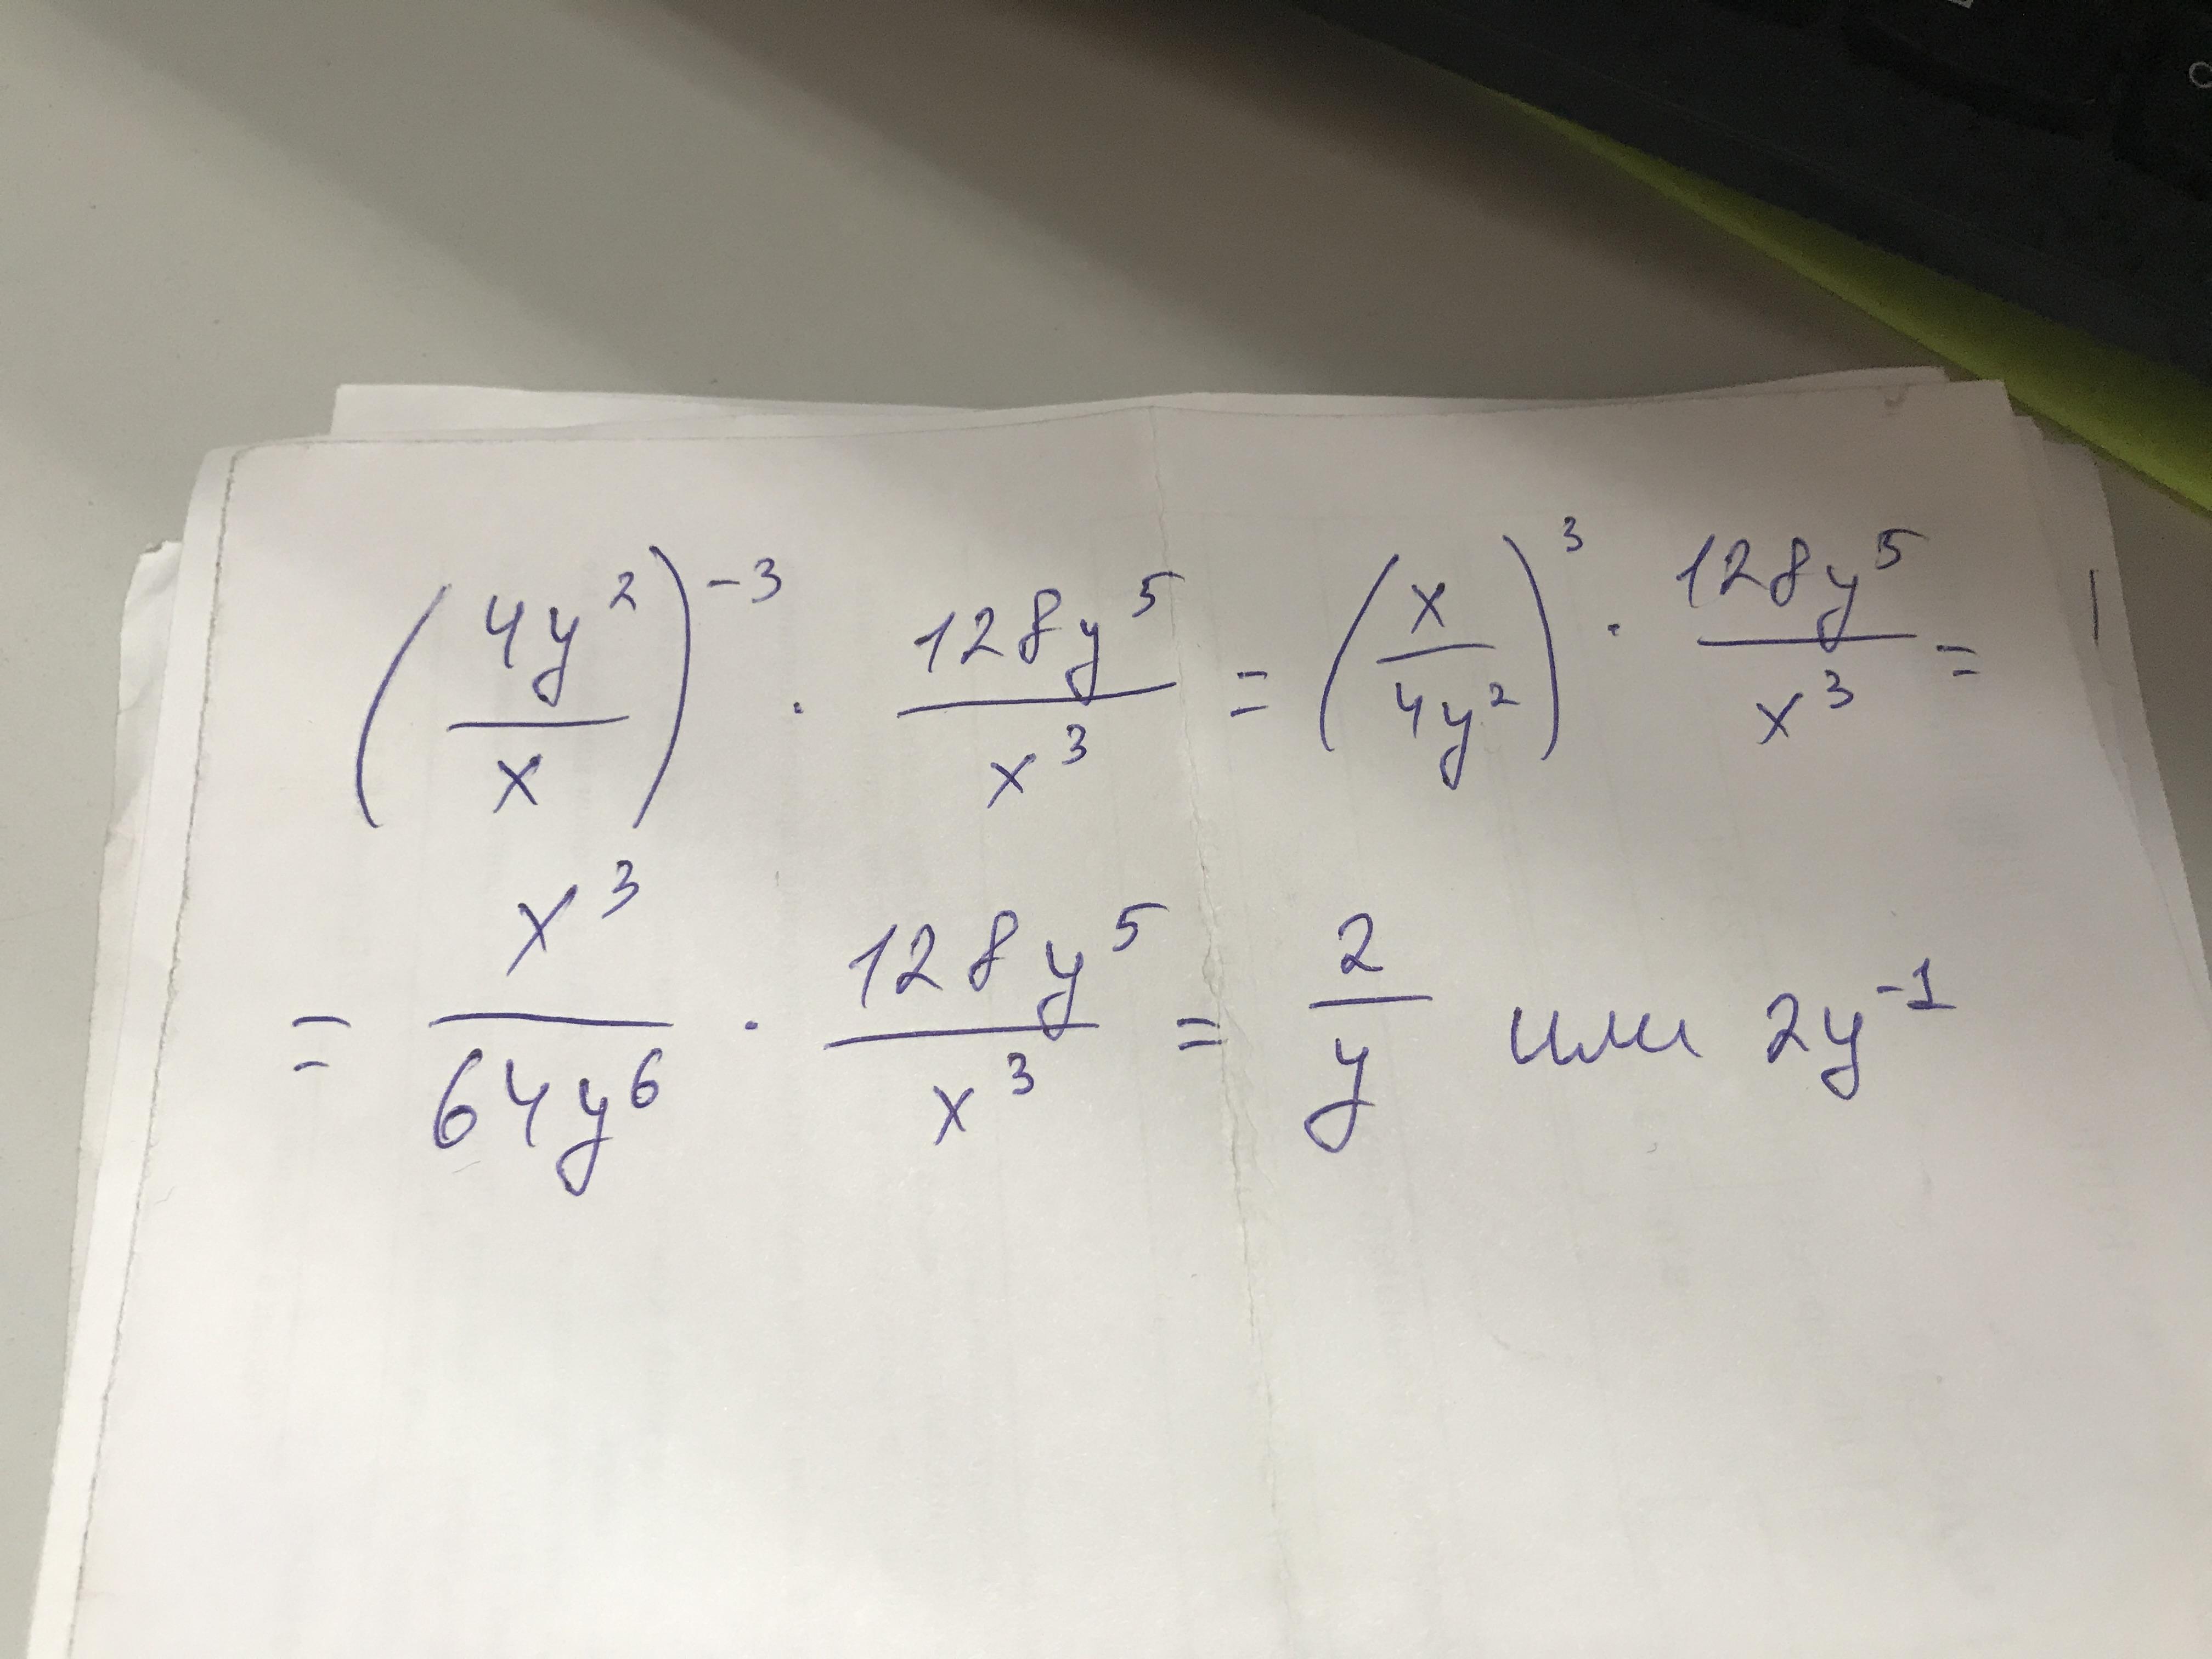 (4y²/x)⁻³ · 128y⁵/x³ = (x/4y²)³ · 128y⁵/x³ =
= x³/64y⁶ · 128y⁵/x³ = 2/y или 2y⁻¹